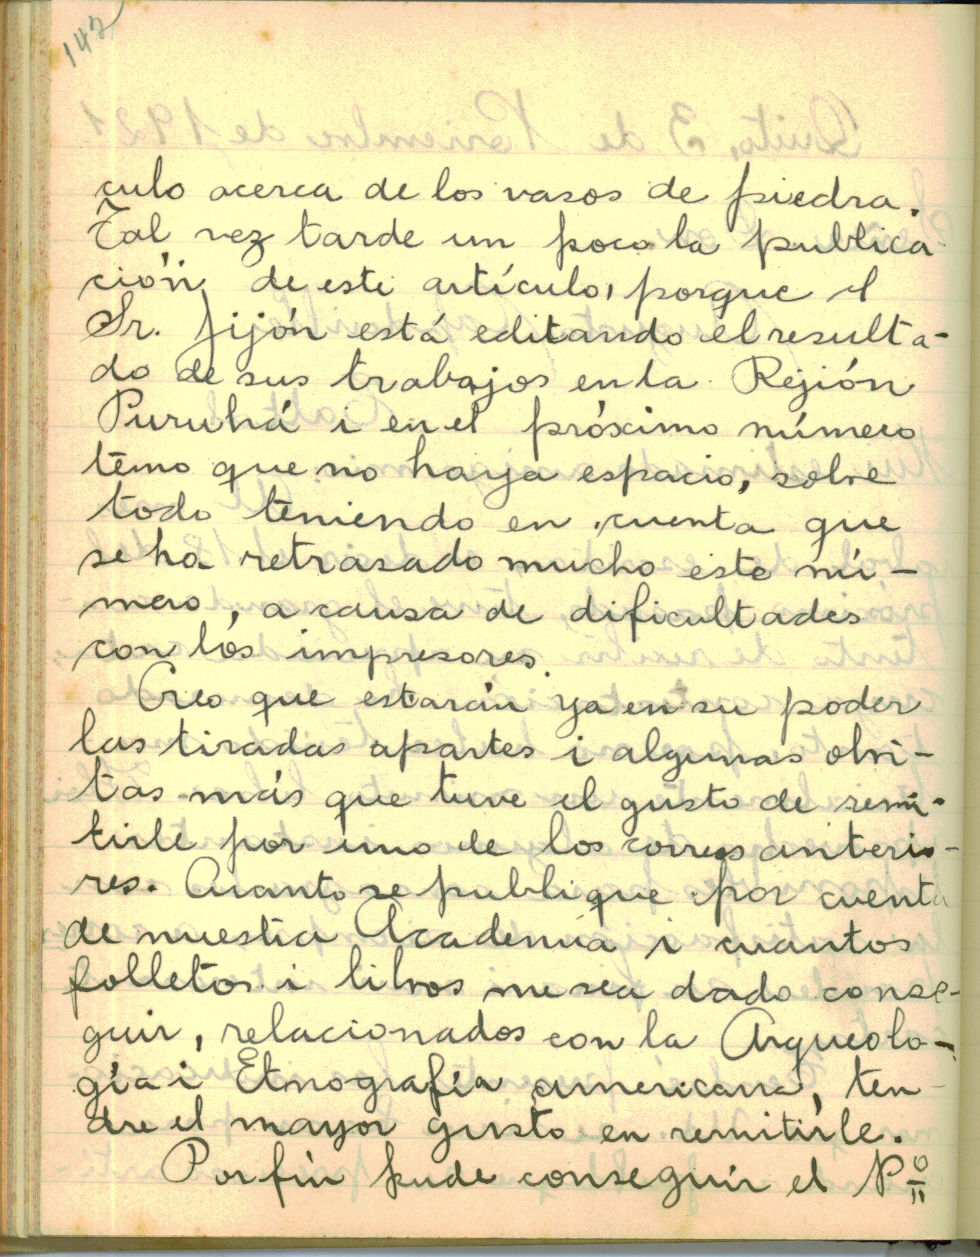 142
culo acerca de los vasos de piedra.
Tal vez tarde un poco la publica-
ción de este artículo, porque el
Sr. Jijón está editando el resulta-
do de sus trabajos en la Rejión
Puruhá i en el próximo número
temo que no haya espacio, sobre
todo teniendo en cuenta que
se ha retrasado mucho este nú-
mero, a causa de dificultades
con los impresores.
Creo que estarán ya en su poder
las tiradas apartes i algunas obri-
tas más que tuve el gusto de remi-
tirle por uno de los correos anterio-
res. Cuanto se publique por cuenta
de nuestra Academia i cuantos
folletos i libros me sea dado conse-
guir, relacionados con la Arqueolo-
gía i Etnografía americana, ten-
dre el mayor gusto en remitirle.
Por fín pude conseguir el Nº